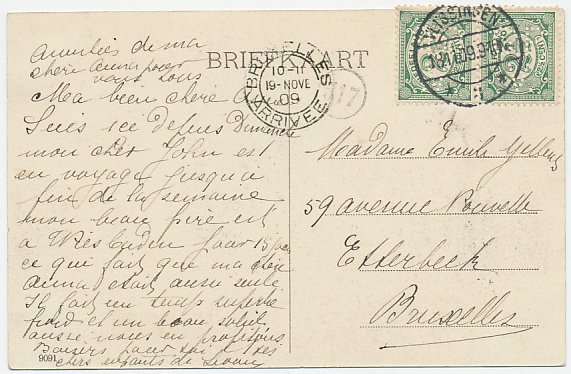 Amitiés de ma
chère Anna pour
vous tous
BRIEFKAART
Ma bien chère
Suis ici depuis Dimanche
mon cher John est
en voyage jusqu'a
fin de la semaine
mon beau père est
a Wiesbaden pour 15 jours
ce qui fait que ma chère
Anna était aussi seule
Il fait un temps superbe
froid et un beau soleil
aussi nous en profitons
Baisers pour toi & tes
chers enfants de
9091
VLISSINGEN
BRUXELLES
10-11
19-NOVE
09
ARRIVEE
117
Madame Emile
59 avenue Nouvelle
Etterbeek
Bruxelles